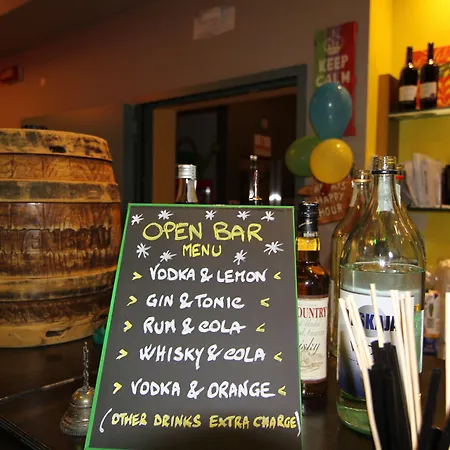 KEEP
CALM
OPEN BAR
MENU
VODKA & LEMON
GIN & TONIC
RUM & COLA
WHISKY & COLA
VODKA & ORANGE
(OTHER DRINKS EXTRA CHARGE)
COUNTRY
HOUR